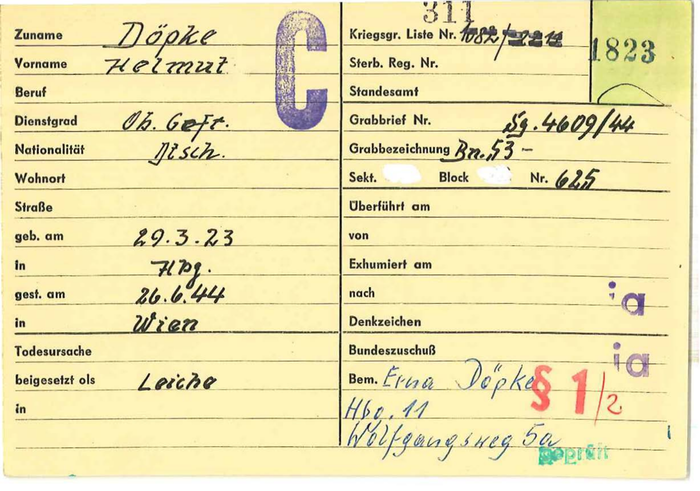 311
Zuname Döpke
Vorname Helmut
Beruf
Dienstgrad Ob. Gefr.
Nationalität Dtsch.
Wohnort
Straße
geb. am 29.3.23
in Hbg.
gest. am 26.6.44
in Wien
Todesursache
beigesetzt als Leiche
in
C
Kriegsgr. Liste Nr. 1082/
1823
Sterb. Reg. Nr.
Standesamt
Grabbrief Nr. Sg. 4609/44
Grabbezeichnung Bn. 53 -
Sekt. Block Nr. 625
Überführt am
von
Exhumiert am
nach
ia
Denkzeichen
Bundeszuschuß
ia
Bem. Erna Döpke
§ 1/2
Hbg. 11
Wolfgangsweg 5a
geprüft